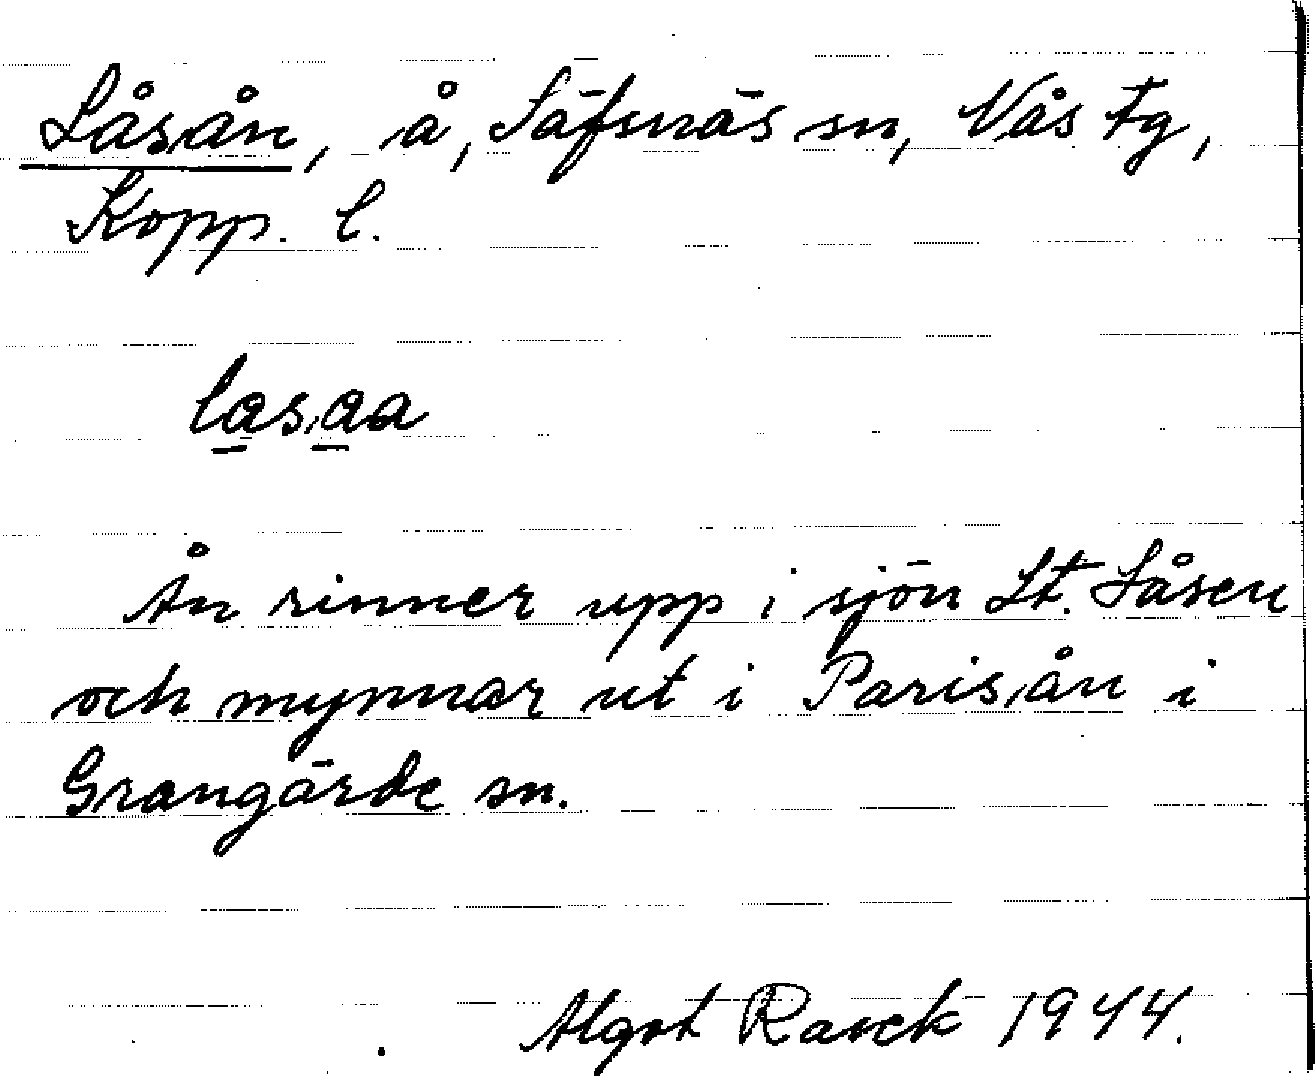 Låsån, å, Säfsnäs sn, Nås tg,
Kopp. l.
låsåa
Ån rinner upp i sjön St. Låsen
och mynnar ut i Parisån i
Grangärde sn.
Algot Rasck 1944.